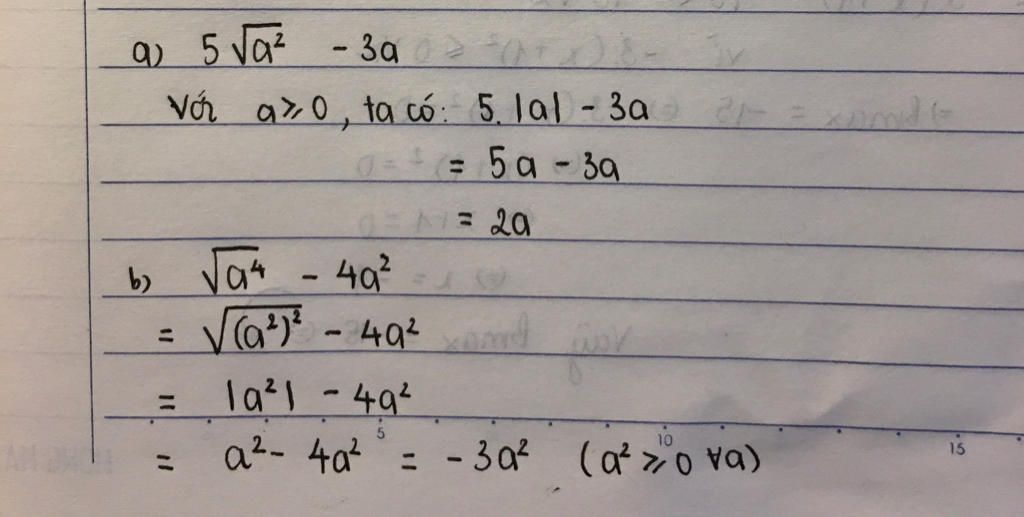 a) 5√a² - 3a
Với a ≥ 0, ta có: 5.|a| - 3a
= 5a - 3a
= 2a
b) √a⁴ - 4a²
= √(a²)² - 4a²
= |a²| - 4a²
5 10 15
= a² - 4a² = -3a² (a² ≥ 0 ∀a)